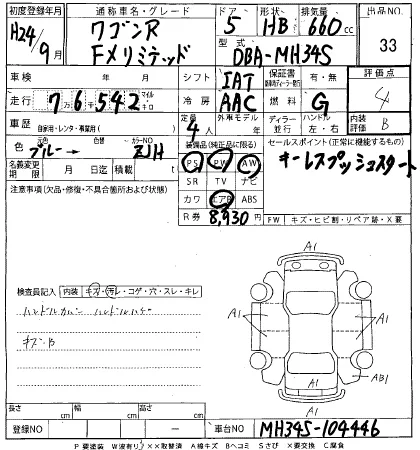 初度登録年月 通称車名・グレード ドア 形状 排気量 出品NO
H24年/9月 ワゴンR FXリミテッド 5 HB 660cc 33
型式 DBA-MH34S
車検 年 月 シフト IAT 保証書 有・無 評価点
走行 76,542 マイル キロ 冷房 AAC 燃料 G 4
車歴 自家用・レンタ・事業用( ) 定員 4人 外車モデル年 ディーラー 並行 ハンドル 左・右 内装評価 B
色 元色 ブルー→ 色替 カラーNO ZJH 装備品(純正品に限る) セールスポイント(正常に機能するもの)
名義変更期限 月 日迄 積載 t PS PW AW キーレスプッシュスタート
注意事項(欠品・修復・不具合箇所および状態) SR TV ナビ
カワ エアB ABS
R券 8,930円 FW キズ・ヒビ割・リペア跡・X要
検査員記入 内装 キズ・汚レ・コゲ・穴・スレ・キレ
ハンドルカバー ハンドルハゲ
キズB
A1
A1 A1
A1 AB1
A1
長さ cm 幅 cm 高さ cm
登録NO 車台NO MH34S-104446
P要塗装 W波有り XX取替済 A線キズ Bヘコミ Sさび X要交換 C腐食